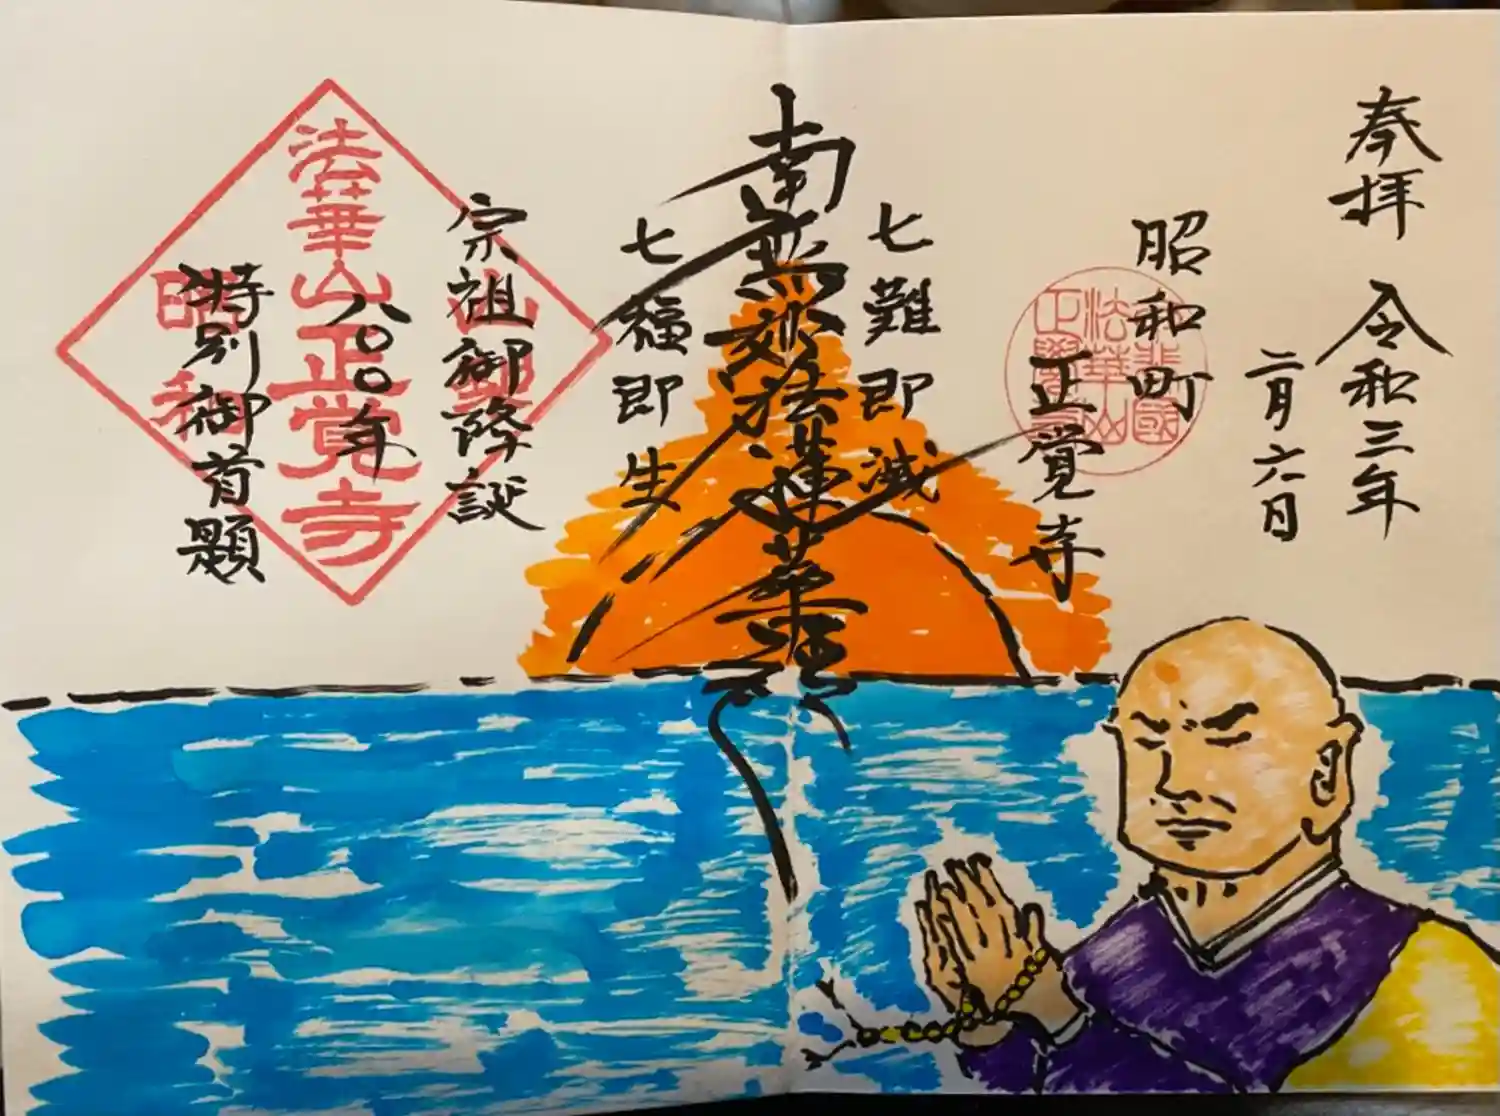 奉拝 令和三年
二月六日
昭和町
正覚寺
七難即滅
南無妙法蓮華経
七福即生
宗祖御降誕
八〇〇年
特別御首題
山梨
法華山正覚寺
昭和